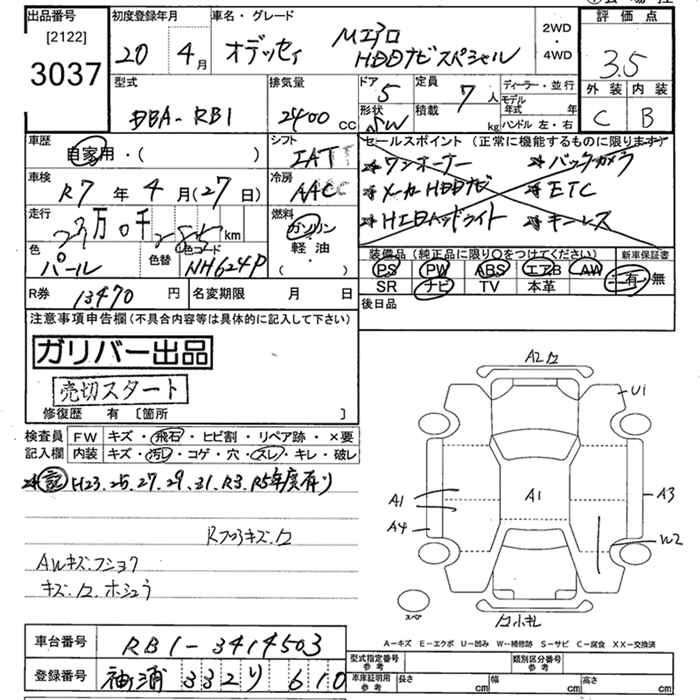 出品番号 初度登録年月 車名・グレード 評価点
[2122]
3037
20年 4月 オデッセイ Mエアロ
HDDナビスペシャル
2WD
・
4WD
3.5
外装 内装
C B
型式 排気量 ドア 定員 ディーラー・並行
DBA-RB1 2400 CC 5 7人 モデル年式 年
形状 積載 ハンドル 左・右
SW kg
車歴 シフト セールスポイント (正常に機能するものに限ります)
自家用・( ) IAT
ワンオーナー バックカメラ
車検 冷房
R7年 4月(27日) AAC
メーカーHDDナビ ETC
HIDヘッドライト キーレス
走行 燃料
23万0千255km ガソリン
軽油
( )
色 色替 色コード
パール NH624P
装備品 (純正品に限り○をつけてください) 新車保証書
PS PW ABS エアB AW 有・無
SR ナビ TV 本革
R券 13470円 名変期限 月 日 後日品
注意事項申告欄(不具合内容等は具体的に記入して下さい)
ガリバー出品
売切スタート
修復歴 有 [箇所 ]
検査員 FW キズ・飛石・ヒビ割・リペア跡・×要
記入欄 内装 キズ・汚し・コゲ・穴・スレ・キレ・破レ
記 H23.25.27.29.31.R3.R5年度有り
Rフロアキズ.
AWキズ.フショク
キズ. ホシュウ
A2
U1
A1 A1 A3
A4
W2
スペア
A-キズ E-エクボ U-凹み W-補修跡 S-サビ C-腐食 XX-交換済
車台番号 RB1-3414503
登録番号 袖浦 332 り 610
型式指定番号 参考 類別区分番号 参考
車庫証明用 参考 長さ cm 幅 cm 高さ cm